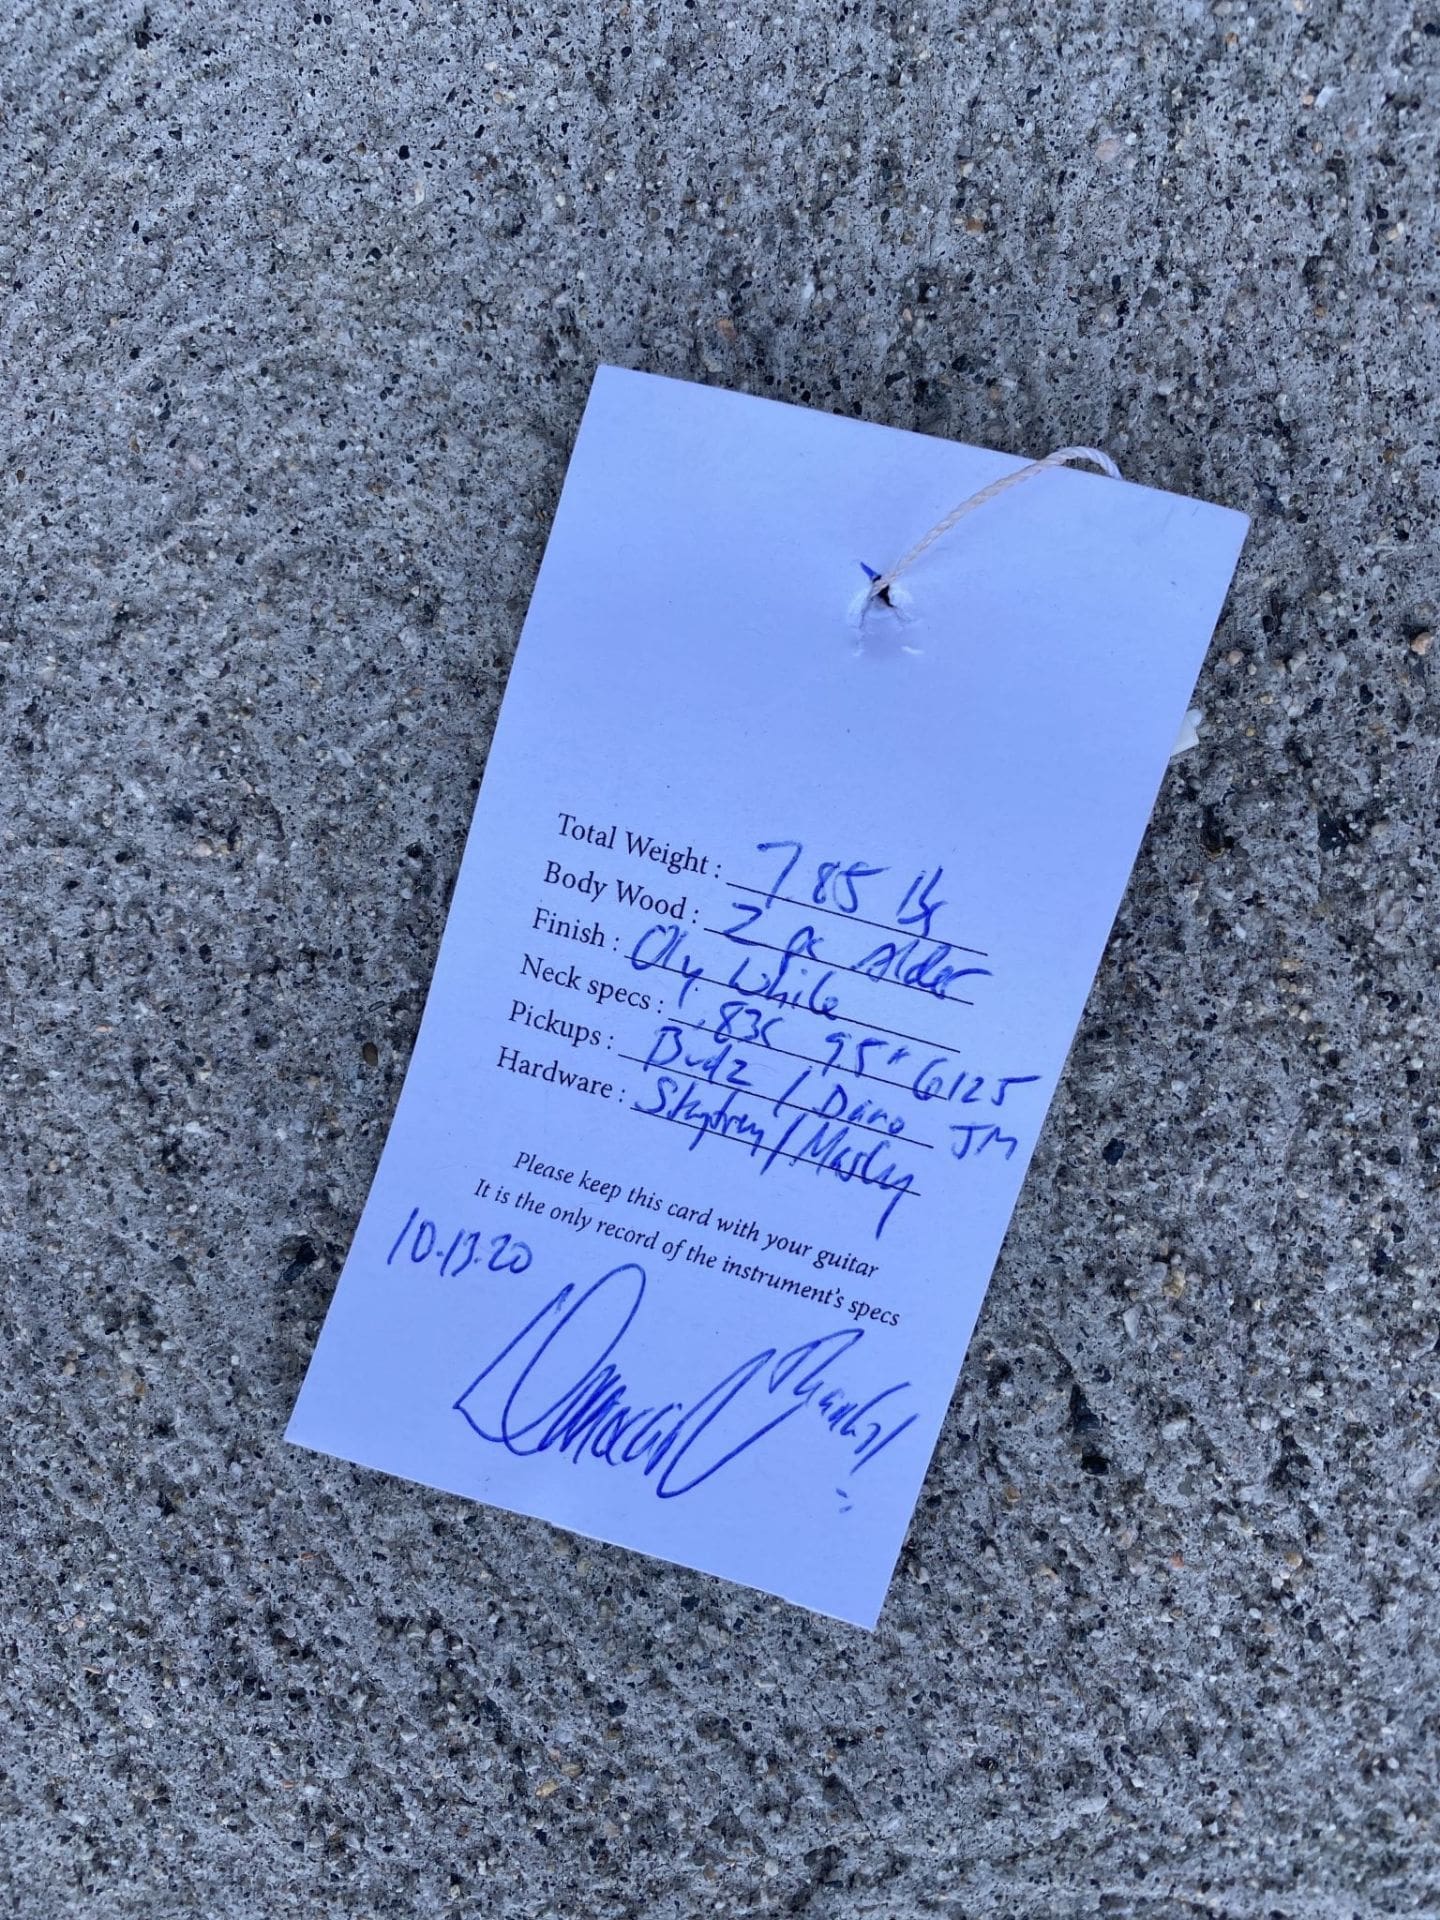 Total Weight : 7 85 lbs
Body Wood : 2 pc Alder
Finish : Oly White
Neck specs : .835 9.5" 6125
Pickups : Budz / Dano JM
Hardware : Staytrem / Mastery
Please keep this card with your guitar
It is the only record of the instrument's specs
10.13.20
Thanks!